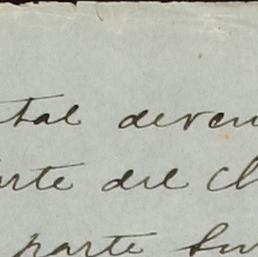 tal deven
arte del Ch
parte Su